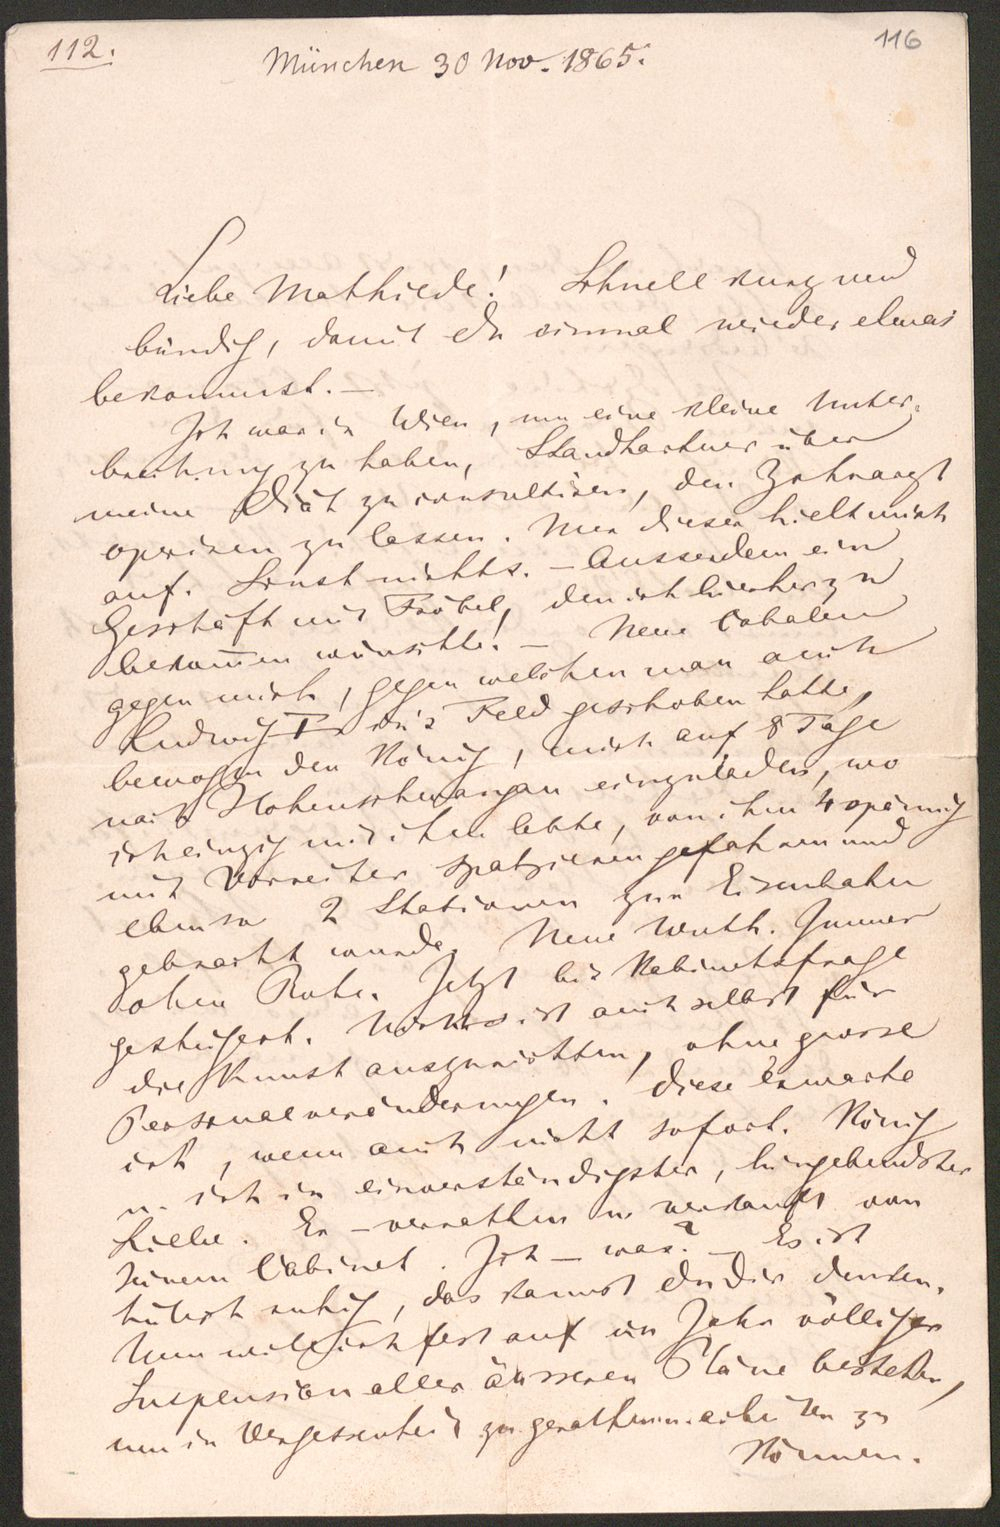 112.
116
München 30 Nov. 1865.
Liebe Mathilde! Schnell kurz und
bündig, damit Du einmal wieder etwas
bekommst. —
Ich war in Wien, um eine kleine Unter-
brechung zu haben, Standhartner über
meine Diät zu consultiren, den Zahnarzt
operiren zu lassen. Nur dieser hielt mich
auf. Sonst nichts. — Ausserdem ein
Geschäft mit Fröbel, den ich hierher zu
bekom̄en wünschte. — Neue Cabalen
gegen mich, gegen welchen man auch
Ludwig I in's Feld geschoben hatte,
bewogen den König, mich auf 8 Tage
nach Hohenschwangau einzuladen, wo
ich einzig mit ihm lebte, von ihm 4spännig
mit Vorreiter spatzieren gefahren und
ebenso 2 Stationen zur Eisenbahn
gebracht wurde. Neue Wuth. Immer
ohne Ruhe. Jetzt bis Kabinetsfrage
gesteigert. Nichts ist auch selbst für
die Kunst auszurichten, ohne grosse
Personalveränderungen. Diese erwarte
ich, wenn auch nicht sofort. König
u. ich in einverständigster, hingebendster
Liebe. Er — verrathen u. verkauft von
seinem Cabinet. Ich — was? — Es ist
hübsch ruhig, das kannst Du Dir denken.
Nun will ich fest auf ein Jahr völliger
Suspension aller äusseren Pläne bestehen,
um in Vergessenheit zu gerathen u. arbeiten zu
können.